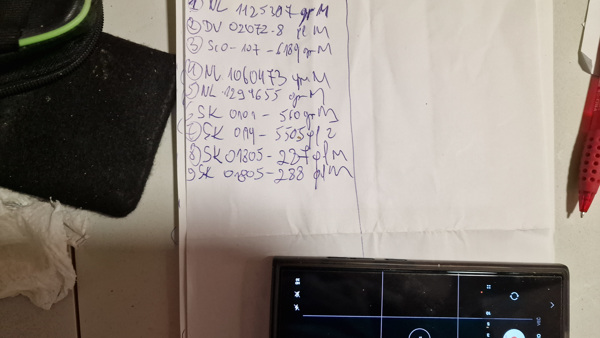 1) NL 1125307 gr M
2) DV 02072-8 fl M
3) SCO-107-6189 gr M
4) NL 1060473 gr M
5) NL 1294655 gr M
SK 0101-560 gr M
7) SK 019-5505 fl 2
8) SK 01805-237 fl M
9 SK 01805-288 fl M